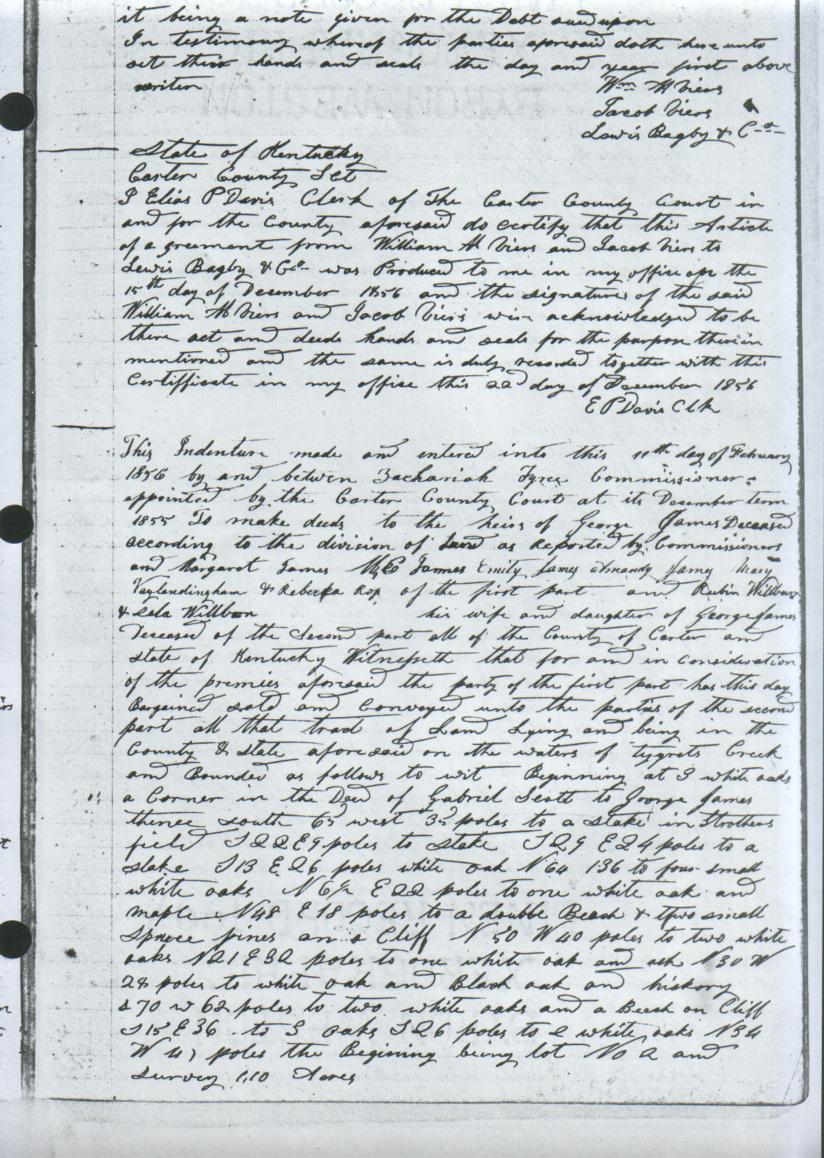 it being a note given for the Debt sued upon
In testimony whereof the parties aforesaid doth here unto
set their hands and seals the day and year first above
writen
Wm H Viers
Jacob Viers
Lewis Bagby & Co
State of Kentucky
Carter County Sct
I Elias P Davis Clerk of The Carter County Court in
and for the County aforesaid do certify that this Article
of agreement from William H Viers and Jacob Viers to
Lewis Bagby & Co was Produced to me in my office on the
15th day of December 1856 and the signatures of the said
William H Viers and Jacob Viers was acknowledged to be
there act and deeds hands and seals for the purpose therein
mentioned and the same is duly recorded together with this
Certificate in my office this 22 day of December 1856
E P Davis Clk
This Indenture made and entered into this day of February
1856 by and betwen Zachariah Tyree Commissioner
appointed by the Carter County Court at its December term
1855 To make deeds to the heirs of George James Deceased
according to the division of Land as Reported by Commissioners
and Margaret James James Emily James Amandy James Mary
Vaylandingham & Rebecka Rop of the first part and Rubin Willban
& Sela Willban his wife and daughter of George James
Deceased of the Second part all of the County of Carter and
state of Kentucky Witnesseth that for and in consideration
of the premies aforesaid the party of the first part has this day
Bargained sold and conveyed unto the parties of the second
part all that tract of Land Lying and being in the
County & State aforesaid on the waters of tygrets Creek
and Bounded as follows to wit Beginning at 3 white oaks
a Corner in the Deed of Gabriel Scott to George James
thence south 63 west poles to a stake in Strothers
field S 22 E 9 poles to stake S 29 E 24 poles to a
stake S 13 E 26 poles white oak N 64 136 to four small
white oaks E 22 poles to one white oak and
maple N 48 E 18 poles to a double Beach & two small
Spruce pines on a Cliff N 50 W 40 poles to two white
oaks N 21 E 32 poles to one white oak and ash N 30 W
28 poles to white oak and Black oak and hickory
S 70 W 62 poles to two white oaks and a Beech on Cliff
S 13 E 36 to 3 oaks S 26 poles to 2 white oaks N 34
W poles the Begining being lot No 2 and
survey 110 Acres